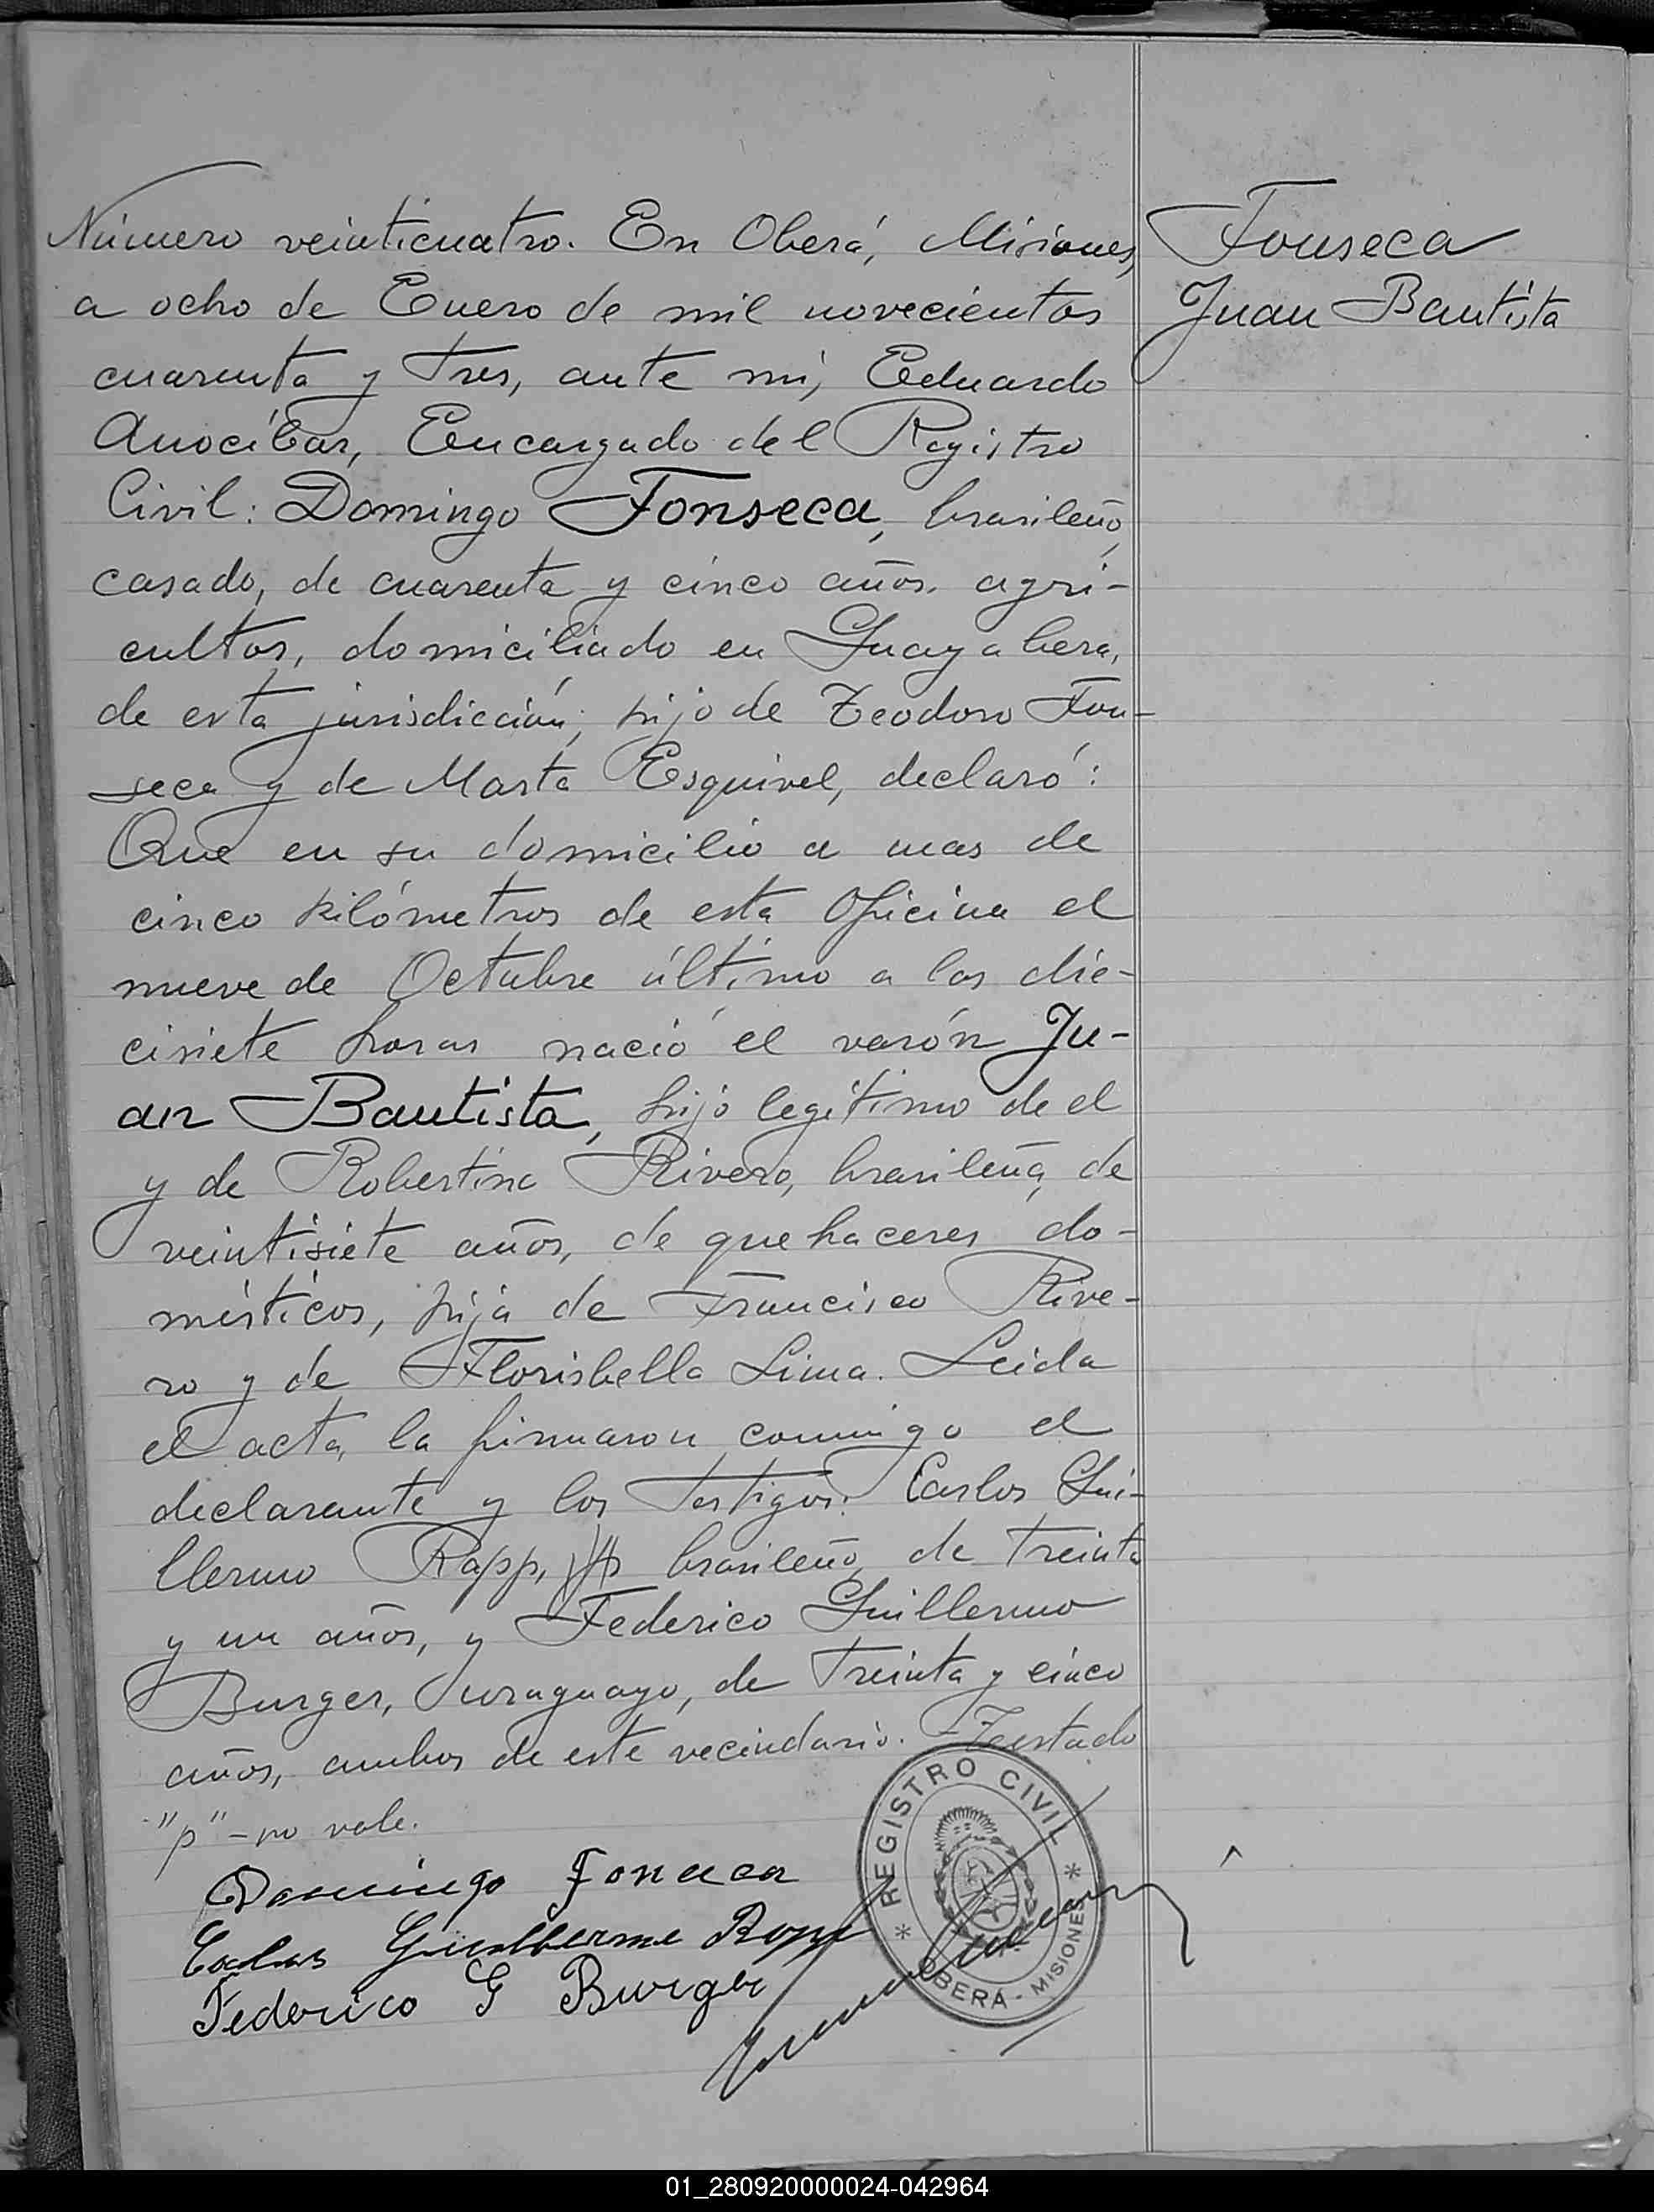 Número veinticuatro. En Oberá, Misiones,
a ocho de Enero de mil novecientos
cuarenta y tres, ante mí, Eduardo
Anocíbar, Encargado del Registro
Civil: Domingo Fonseca, brasileño,
casado, de cuarenta y cinco años, agri-
cultor, domiciliado en Guayabera,
de esta jurisdicción, hijo de Teodoro Fon-
seca y de Marta Esquivel, declaró:
Que en su domicilio a mas de
cinco kilómetros de esta Oficina el
nueve de Octubre último a las die-
cisiete horas nació el varón Ju-
an Bautista, hijo legítimo de el
y de Robertina Rivero, brasileña, de
veintisiete años, de quehaceres do-
mésticos, hija de Francisco Rive-
ro y de Florisbella Lima. Leída
el acta, la firmaron conmigo el
declarante y los testigos: Carlos Gui-
llermo Rapp, brasileño, de treinta
y un años, y Federico Guillermo
Burger, uruguayo, de treinta y cinco
años, ambos de este vecindario. Testado
"p" - no vale.
Domingo Fonseca
Carlos Guilherme Rapp
Federico G Burger
Fonseca
Juan Bautista
* REGISTRO CIVIL *
OBERÁ - MISIONES
01_280920000024-042964